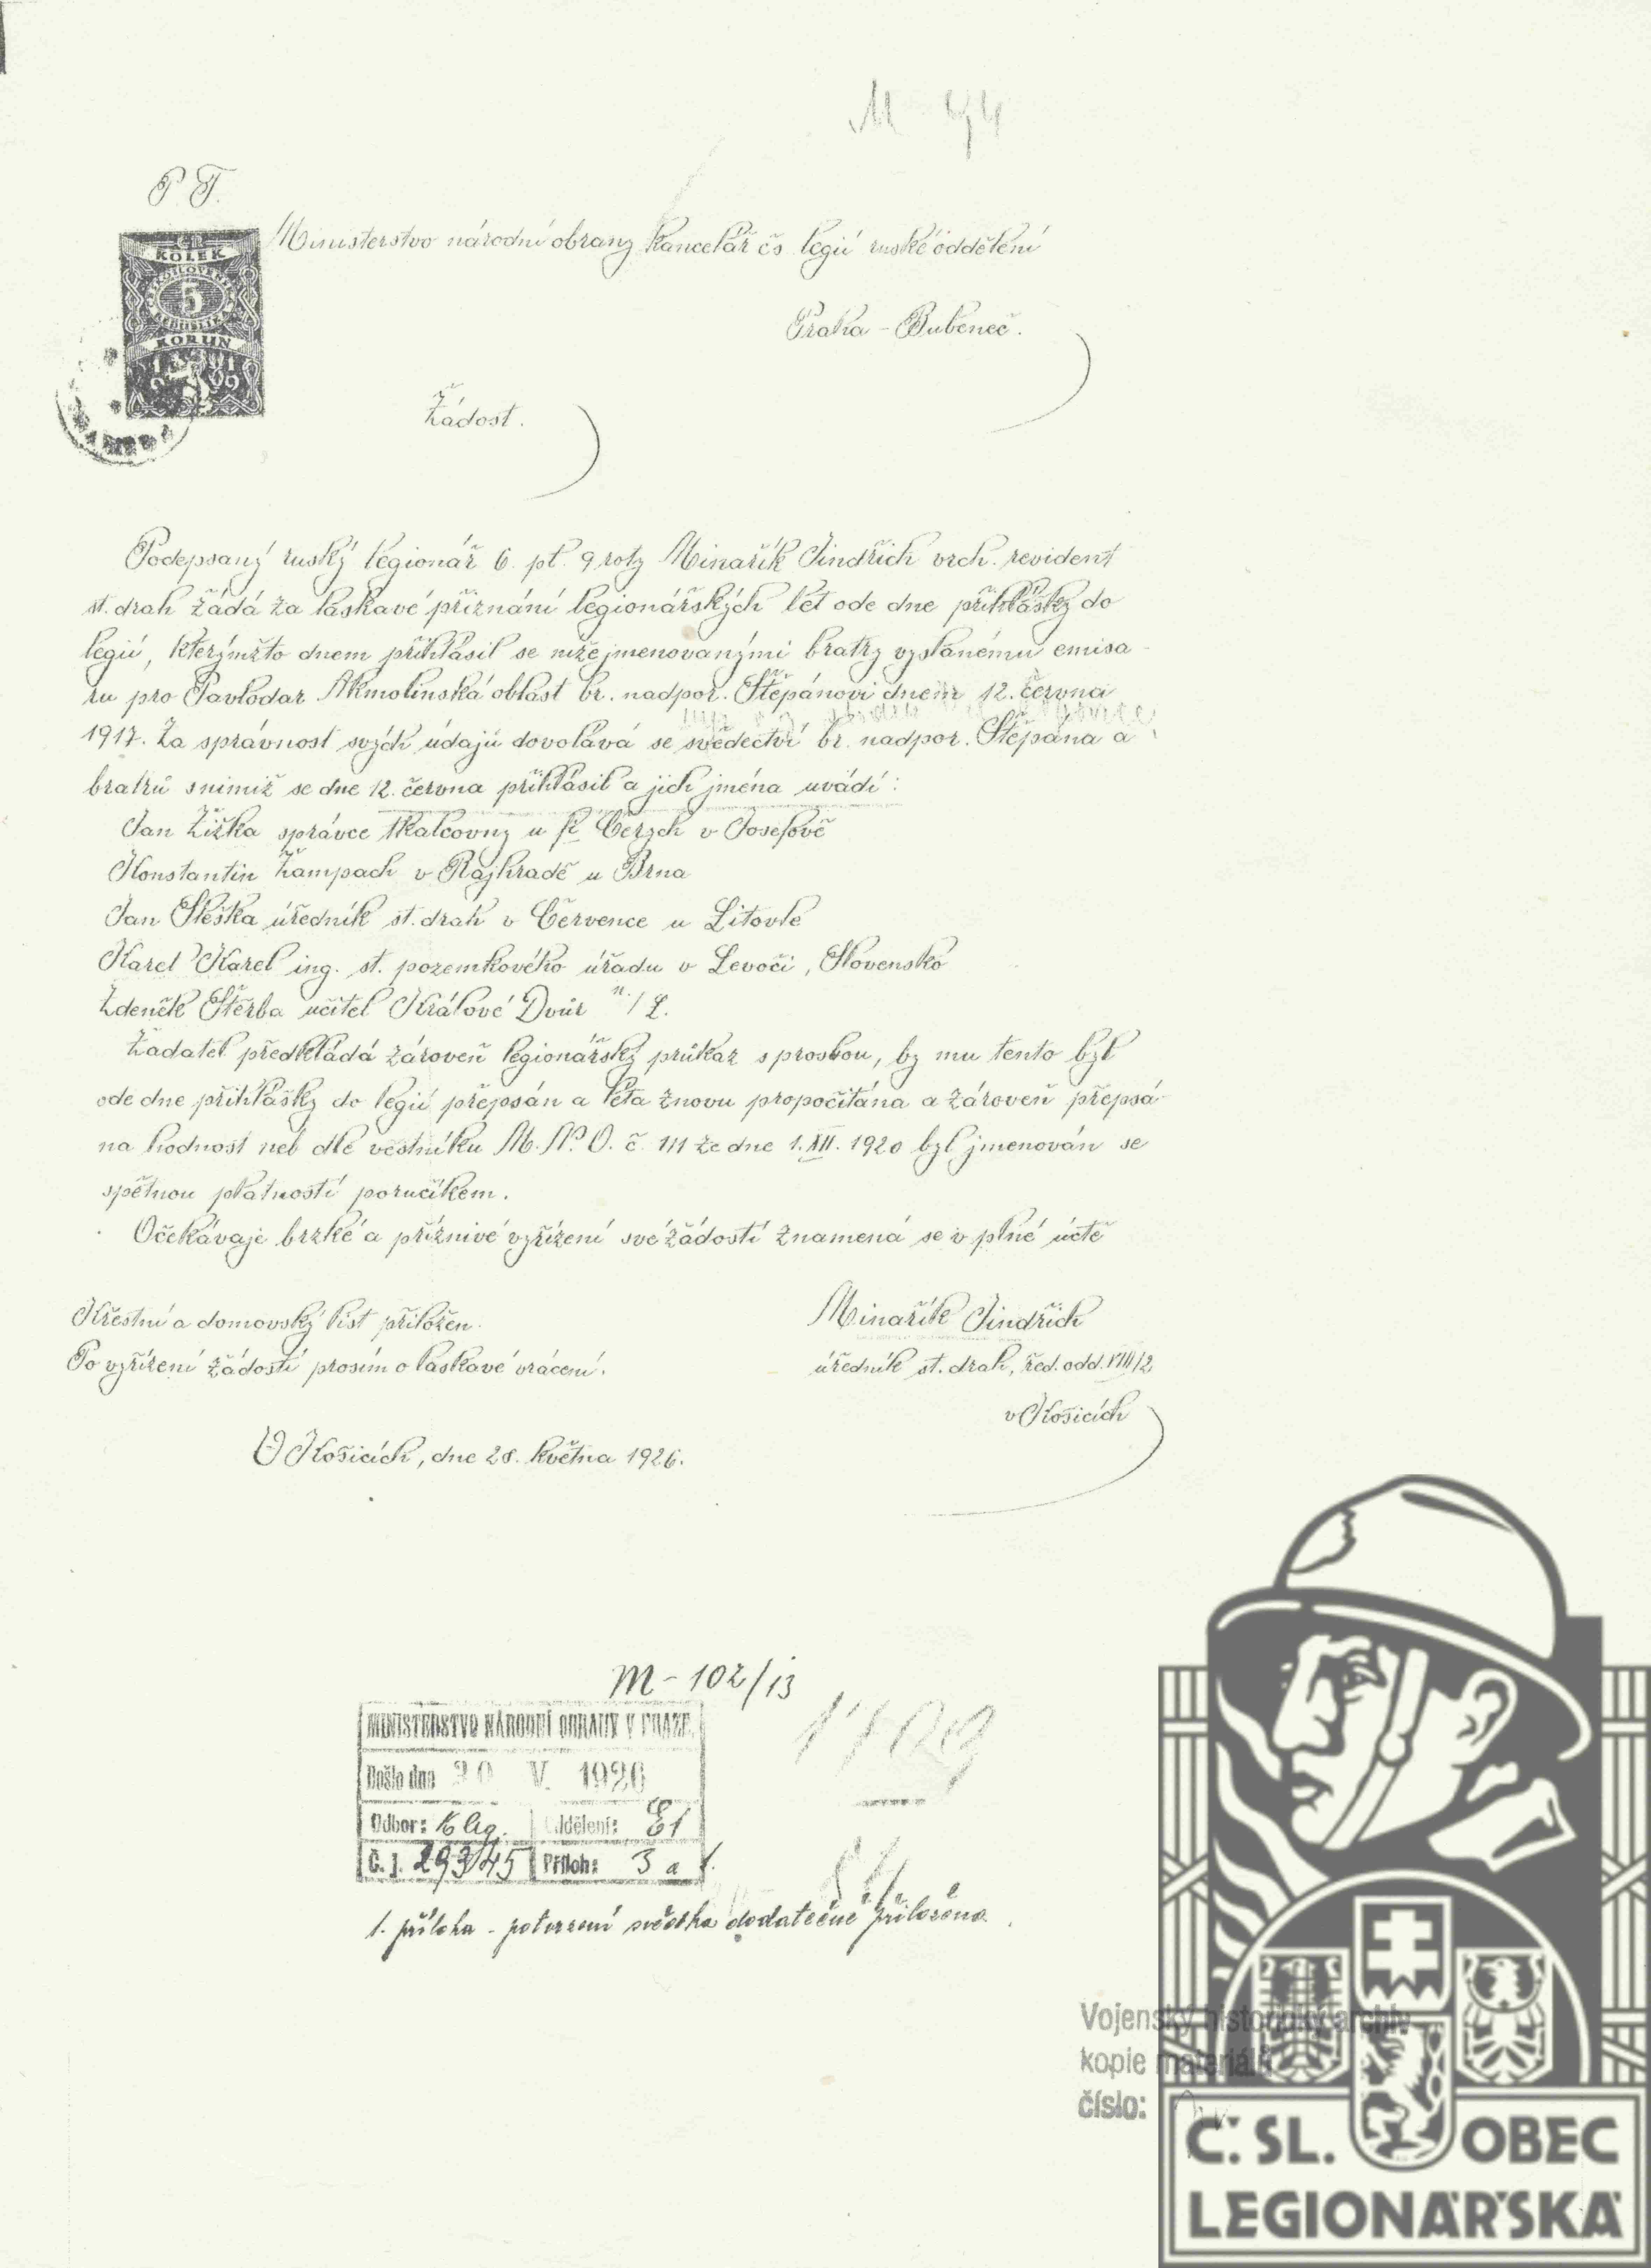 M 94
P. T.
KOLEK
5
KORUN
Ministerstvo národní obrany Kancelář čs legií ruské oddělení
Praha - Bubeneč.
Žádost.
Podepsaný ruský legionář 6. pl. 9 roty Minařík Jindřich vrch. revident
st. drah žádá za laskavé přiznání legionářských let ode dne přihlášky do
legií, kterýmžto dnem přihlásil se nížejmenovanými bratry vyslanému emisa-
ru pro Pavlodar Akmolinská oblast br. nadpor. Štěpánovi dnem 12. června
1917. Za správnost svých údajů dovolává se svědectví br. nadpor. Štěpána a
bratrů snimiž se dne 12. června přihlásil a jich jména uvádí:
Jan Žižka správce tkalcovny u fi Čerych v Josefově
Konstantin Žampach v Rajhradě u Brna
Jan Steška úředník st. drah v Července u Litovle
Karel Karel ing. st. pozemkového úřadu v Levoči, Slovensko
Zdeněk Štěrba učitel Králové Dvůr n./L.
Žadatel předkládá zároveň legionářský průkaz s prosbou, by mu tento byl
ode dne přihlášky do legií přepsán a léta znovu propočítána a zároveň přepsá-
na hodnost neb dle věstníku M. N. O. č. 111 ze dne 1. XII. 1920 byl jmenován se
spětnou platností poručíkem.
Očekávaje brzké a příznivé vyřízení své žádosti znamená se v plné úctě
Křestní a domovský list přiložen.
Po vyřízení žádosti prosím o laskavé vrácení.
Minařík Jindřich
úředník st. drah, řed. odd. VIII/2
v Košicích
V Košicích, dne 28. května 1926.
M - 102/13
MINISTERSTVO NÁRODNÍ OBRANY V PRAZE.
Došlo dne 30 V. 1926
Odbor: K leg. Oddělení: E1
Č. j. 29345 Příloh: 3 a 1.
1. příloha - potvrzení svědka dodatečně přiložena.
Vojenský historický archiv
kopie materiálu
číslo:
Č. SL. OBEC
LEGIONÁŘSKÁ